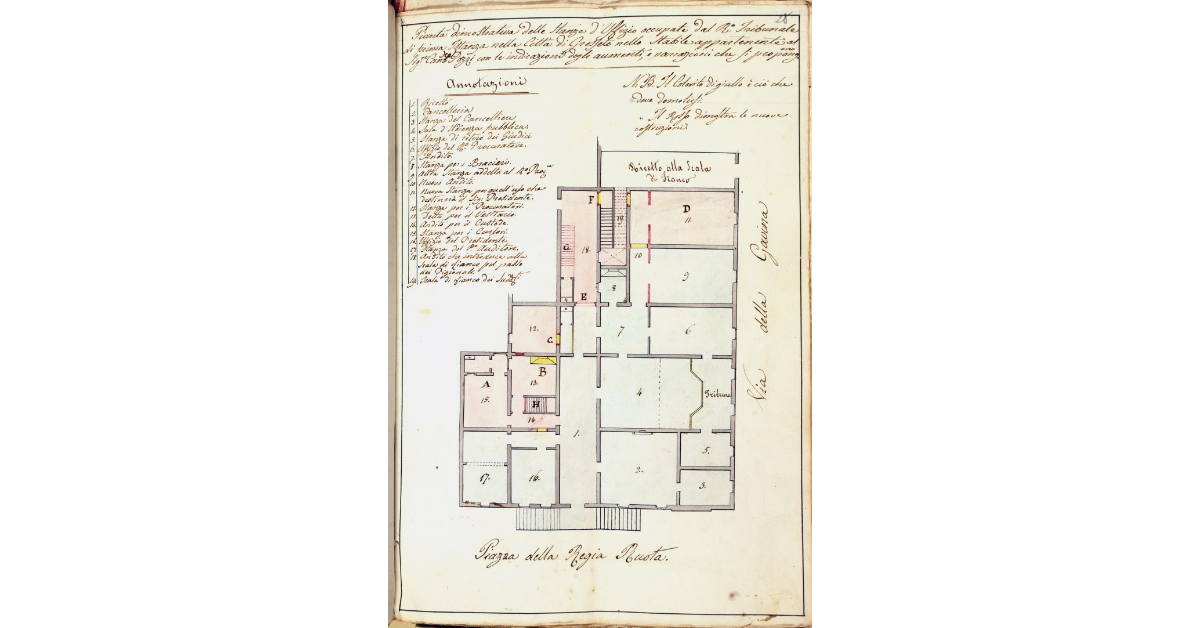 28
Pianta dimostrativa delle Stanze d'Uffizio occupate dal R.º Tribunale
di prima Istanza nella Città di Grosseto nello Stabile appartenente al
Sigr. Pozzi con le indicazioni degli aumenti, e variazioni che si propong.no
Annotazioni
1 Ricetto
2 Cancelleria
3 Stanza del Cancelliere
4 Sala d'Udienza pubblica
5 Stanza di ritiro dei Giudici
6 Uffizio del R.º Procuratore
7 Andito
8 Stanza per i Bracieri
9 Altra Stanza addetta al R.º Proc.re
10 Nuovo Andito
11 Nuova Stanza per quell'uso che
destinerà il Sig. Presidente.
12 Stanza per i Procuratori.
13 Detta per il Vestiario
14 Andito per il Custode
15 Stanza per i Cursori
16 Uffizio del Presidente
17 Stanza del R.º Auditore
18 Andito che introduce alla
Scala di fianco pel passo
dei
19 Scala di fianco dei
N.B. Il Colorito di giallo è ciò che
deve demolirsi
" Il Rosso dimostra le nuove
costruzioni
Ricetto alla Scala
di fianco
F
19
D
11.
G
18.
10
9
8
E
12.
C.
7
6
A
15.
B
13.
H
14
4
Tribuna
1.
5.
17.
16.
2.
3.
Via della Gavina
Piazza della Regia Ruota.